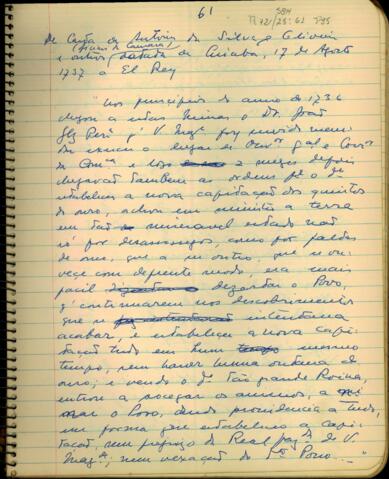 61
SBH
P.72/25:61 P95
De Carta de Antonio da Silva e Oliveira
e outros (oficiais da Camara) datada de Cuiaba, 17 de Agosto
1737 a El Rey
"Nos principios do anno de 1736
chegou a estas Minas o Dr. João
Glz Perª q' V. Magᵉ foy servido man
dar exercer o lugar de Ouvᵒʳ Gˡ e Corrᵒʳ
da Comᶜᵃ e logo mezes depois
chegarão tambem as ordens pᵃ o q' se
estabeleceu a nova capitação dos quintos
do ouro, achou este ministro a terra
em tão miseravel estado não
só por desarranjos, como por faltas
de ouro, que a outro, que não
fosse com deferente modo, era mais
facil dezertar o Povo,
q' continuarem nos descobrimentos
que se intentava
acabar, e estabeleceu a nova capi-
tação tudo em hum mesmo
tempo, sem haver huma oitava de
ouro; e vendo o dº tão grande Roina,
entrou a socegar os animos, a ani
mar o Povo, dando providencia a tudo,
em forma que estabeleceu a capi-
tação, sem prejuizo da Real fazᵈᵃ de V.
Magᵉ, nem vexação do Povo...